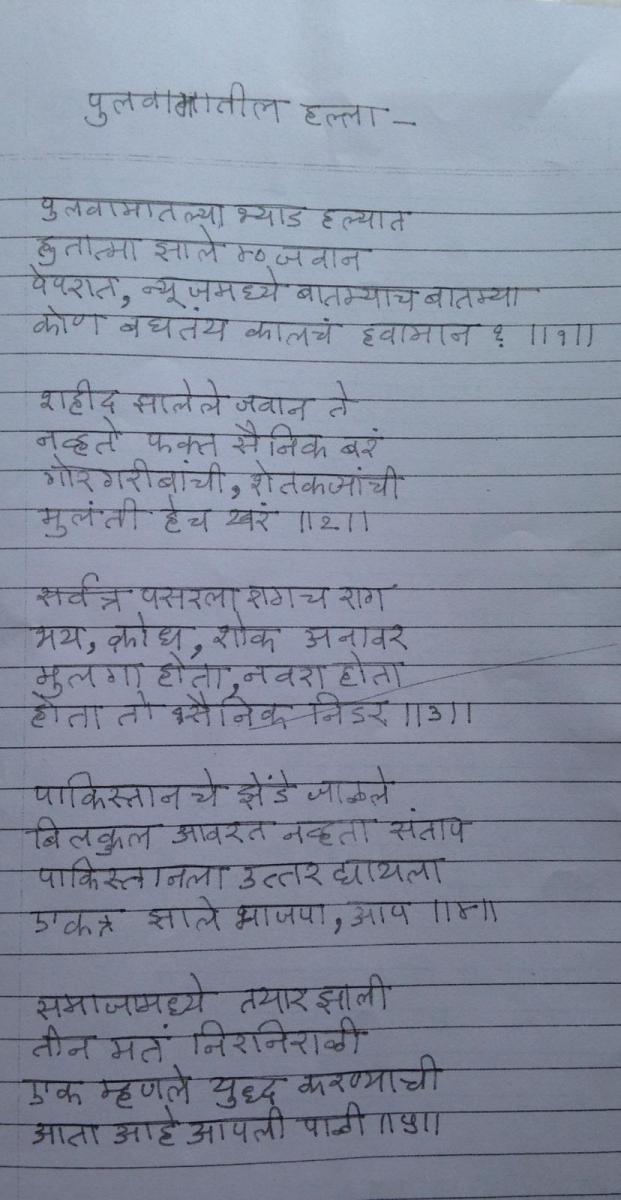 पुलवामातील हल्ला -
पुलवामातल्या भ्याड हल्यात
हुतात्मा झाले ४० जवान
पेपरात, न्यूजमध्ये बातम्याच बातम्या
कोण बघतंय कालचं हवामान ? ॥१॥
शहीद झालेले जवान ते
नव्हते फक्त सैनिक बरं
गोरगरीबांची, शेतकऱ्यांची
मुलं ती हेच खरं ॥२॥
सर्वत्र पसरला रागच राग
भय, क्रोध, शोक अनावर
मुलगा होता, नवरा होता
होता तो सैनिक निडर ॥३॥
पाकिस्तानचे झेंडे जाळले
बिलकुल आवरत नव्हता संताप
पाकिस्तानला उत्तर द्यायला
एकत्र झाले भाजपा, आप ॥४॥
समाजामध्ये तयार झाली
तीन मतं निरनिराळी
एक म्हणले युद्ध करण्याची
आता आहे आपली पाळी ॥५॥